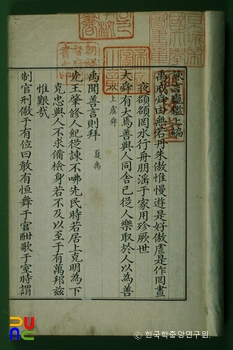 禹戒舜曰無若丹朱傲惟慢遊是好傲虐是作罔晝
夜頟頟罔水行舟朋淫于家用殄厥世
上虞舜
大舜有大焉善與人同舍己從人樂取於人以為善
禹聞善言則拜 夏禹
先王肇修人紀從諫弗咈先民時若居上克明為下
克忠與人不求備檢身若不及以至于有萬邦玆
惟艱哉
制官刑儆于有位曰敢有恆舞于宮酣歌于室時謂
한국학중앙연구원